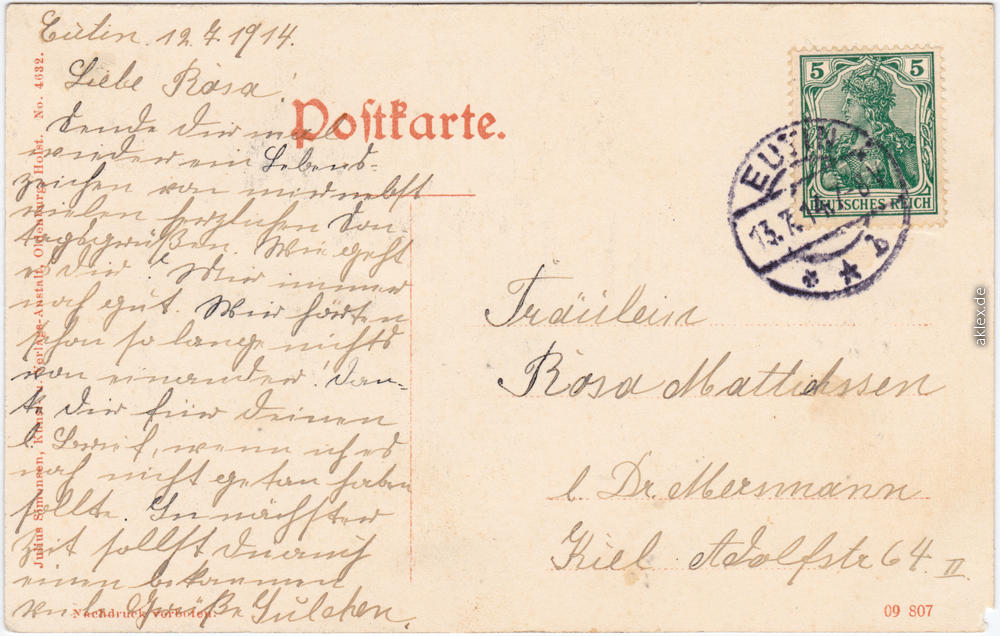 Eutin 12.7.1914.
Liebe Rosa!
Sende Dir mal
wieder ein Lebens-
zeichen von mir nebst
vielen herzlichen Son
tagsgrüßen. Wie geht
es dir? Mir immer
noch gut. Wir hörten
schon so lange nichts
von einander. Dan-
ke Dir für Deinen
l. Brief, wenn ich es
noch nicht getan haben
sollte. In nächster
Zeit sollst du auch
einen bekommen
viele Grüße Julchen.
Postkarte.
5 5
DEUTSCHES REICH
EUTIN
13.7.14
* ★ b
Fräulein
Rosa Mathissen
b Dr. Mersmann
Kiel Adolfstr 64 II
Julius Simonsen, Kunst- u. Verlags-Anstalt, Oldenburg i. Holst. No. 4632.
Nachdruck verboten.
09 807
aklex.de